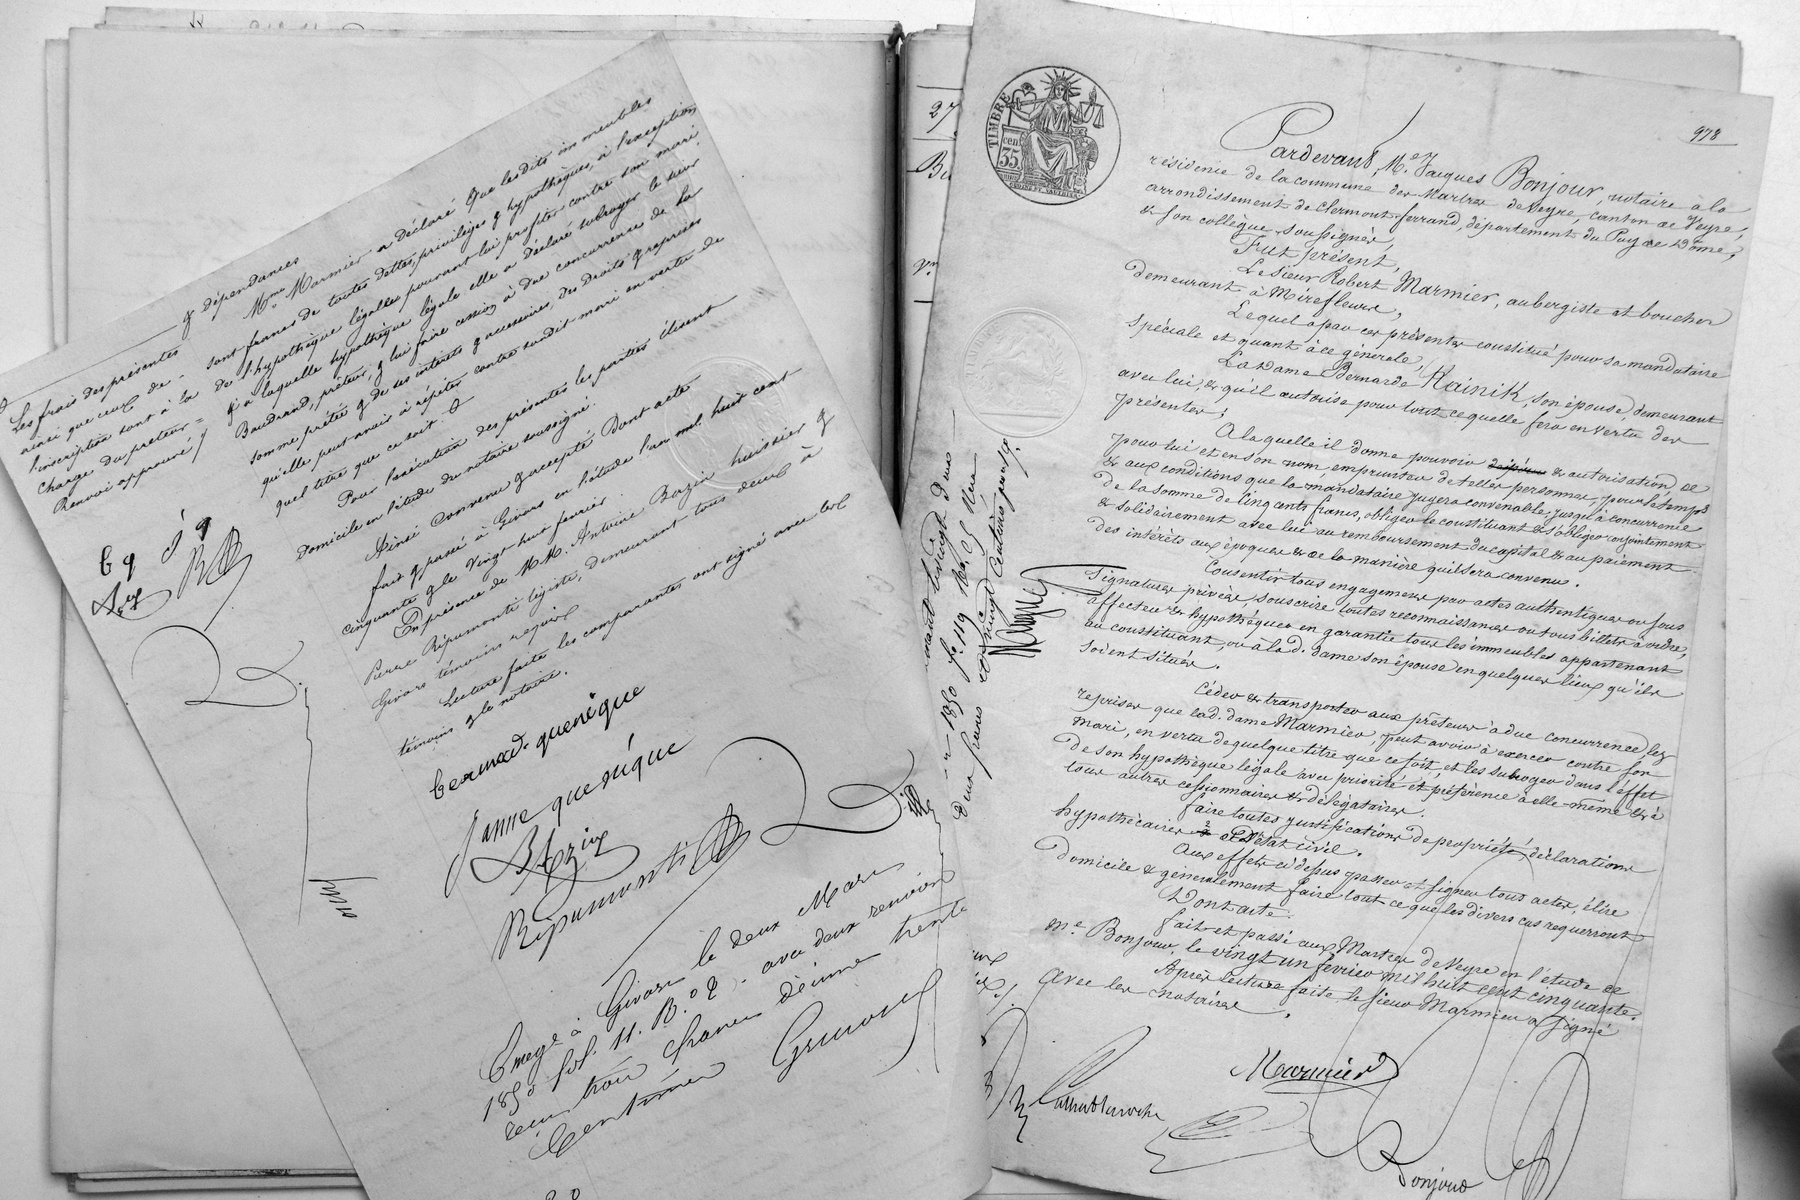 & dépendances
Mme Marmier a déclaré que lesdits immeubles
sont francs de toutes dettes, privilèges & hypothèques, à l'exception
de l'hypothèque légalle pouvant lui profiter contre son mari
& à laquelle hypothèque légale elle a déclaré subroger le sieur
Baudrand, prêteur, & lui faire cession à due concurrence de la
somme prêtée & de ses intérêts & accessoires, des droits & reprises
qu'elle peut avoir à répéter contre sondit mari en vertu de
quel titre que ce soit.
Pour l'exécution des présentes les parties élisent
domicile en l'étude du notaire soussigné.
Ainsi convenu & accepté Dont acte
fait & passé à Givors en l'étude l'an mil huit cent
cinquante & le vingt huit février.
En présence de MM. Antoine Bazin huissier &
Pierre Ripamonti légiste, demeurant tous deux à
Givors témoins requis
Lecture faite les comparantes ont signé avec les
témoins & le notaire.
Les frais des présentes
ainsi que ceux de
l'inscription sont à la
charge du prêteur =
Renvoi approuvé
bq jq
RB
bernard quenique
Janne quenique
Ripamonti
Enregé à Givors le deux Mars
1850 fol. 11. R.
avec deux renvois
reçu trois francs décime trente
Centimes
27
TIMBRE
35 cen
978
Pardevant, Me Jacques Bonjour, notaire à la
résidence de la commune des Martres de Veyre, canton de Veyre
arrondissement de Clermont-ferrand, département du Puy de Dôme,
& son collègue, soussignés,
Fut présent,
Le sieur Robert Marmier, aubergiste et boucher
demeurant à Mirefleurs,
Lequel a par ces présentes constitué pour sa mandataire
spéciale et quant à ce générale,
La Dame Bernarde Kainik, son épouse demeurant
avec lui, & qu'il autorise pour tout ce quelle fera en vertu des
présentes;
A laquelle il donne pouvoir & autorisation de
pour lui et en son nom, emprunter de telles personnes, pour le temps
& aux conditions que la mandataire jugera convenable, jusqu'à concurrence
de la somme de cinq cents francs, obliger le constituant & s'obliger conjointement
& solidairement avec lui au remboursement du capital & au paiement
des intérêts aux époques & de la manière qu'il sera convenu.
Consentir tous engagemens par actes authentiques ou sous
signatures privées, souscrire toutes reconnaissances ou tous billets à ordre,
affecter & hypothéquer en garantie tous les immeubles appartenant
au constituant, ou à lad. dame son épouse en quelques lieux qu'ils
soient situés.
Céder & transporter aux prêteurs à due concurrence les
reprises que lad. dame Marmier, peut avoir à exercer contre son
mari, en vertu de quelque titre que ce soit, et les subroger dans l'effet
de son hypothèque légale avec priorité et préférence à elle-même & à
tous autres cessionnaires & délégataires.
faire toutes justifications de propriété, déclarations
hypothécaires et d'état civil.
Aux effets ci dessus passer et signer tous actes, élire
domicile & généralement faire tout ce que les divers cas requerront
Dont acte.
fait et passé aux Martres de Veyre en l'étude de
Me Bonjour, le vingt un février mil huit cent cinquante.
Après lecture faite, le sieur Marmier a signé
avec les notaires.
Marmier
Bonjour